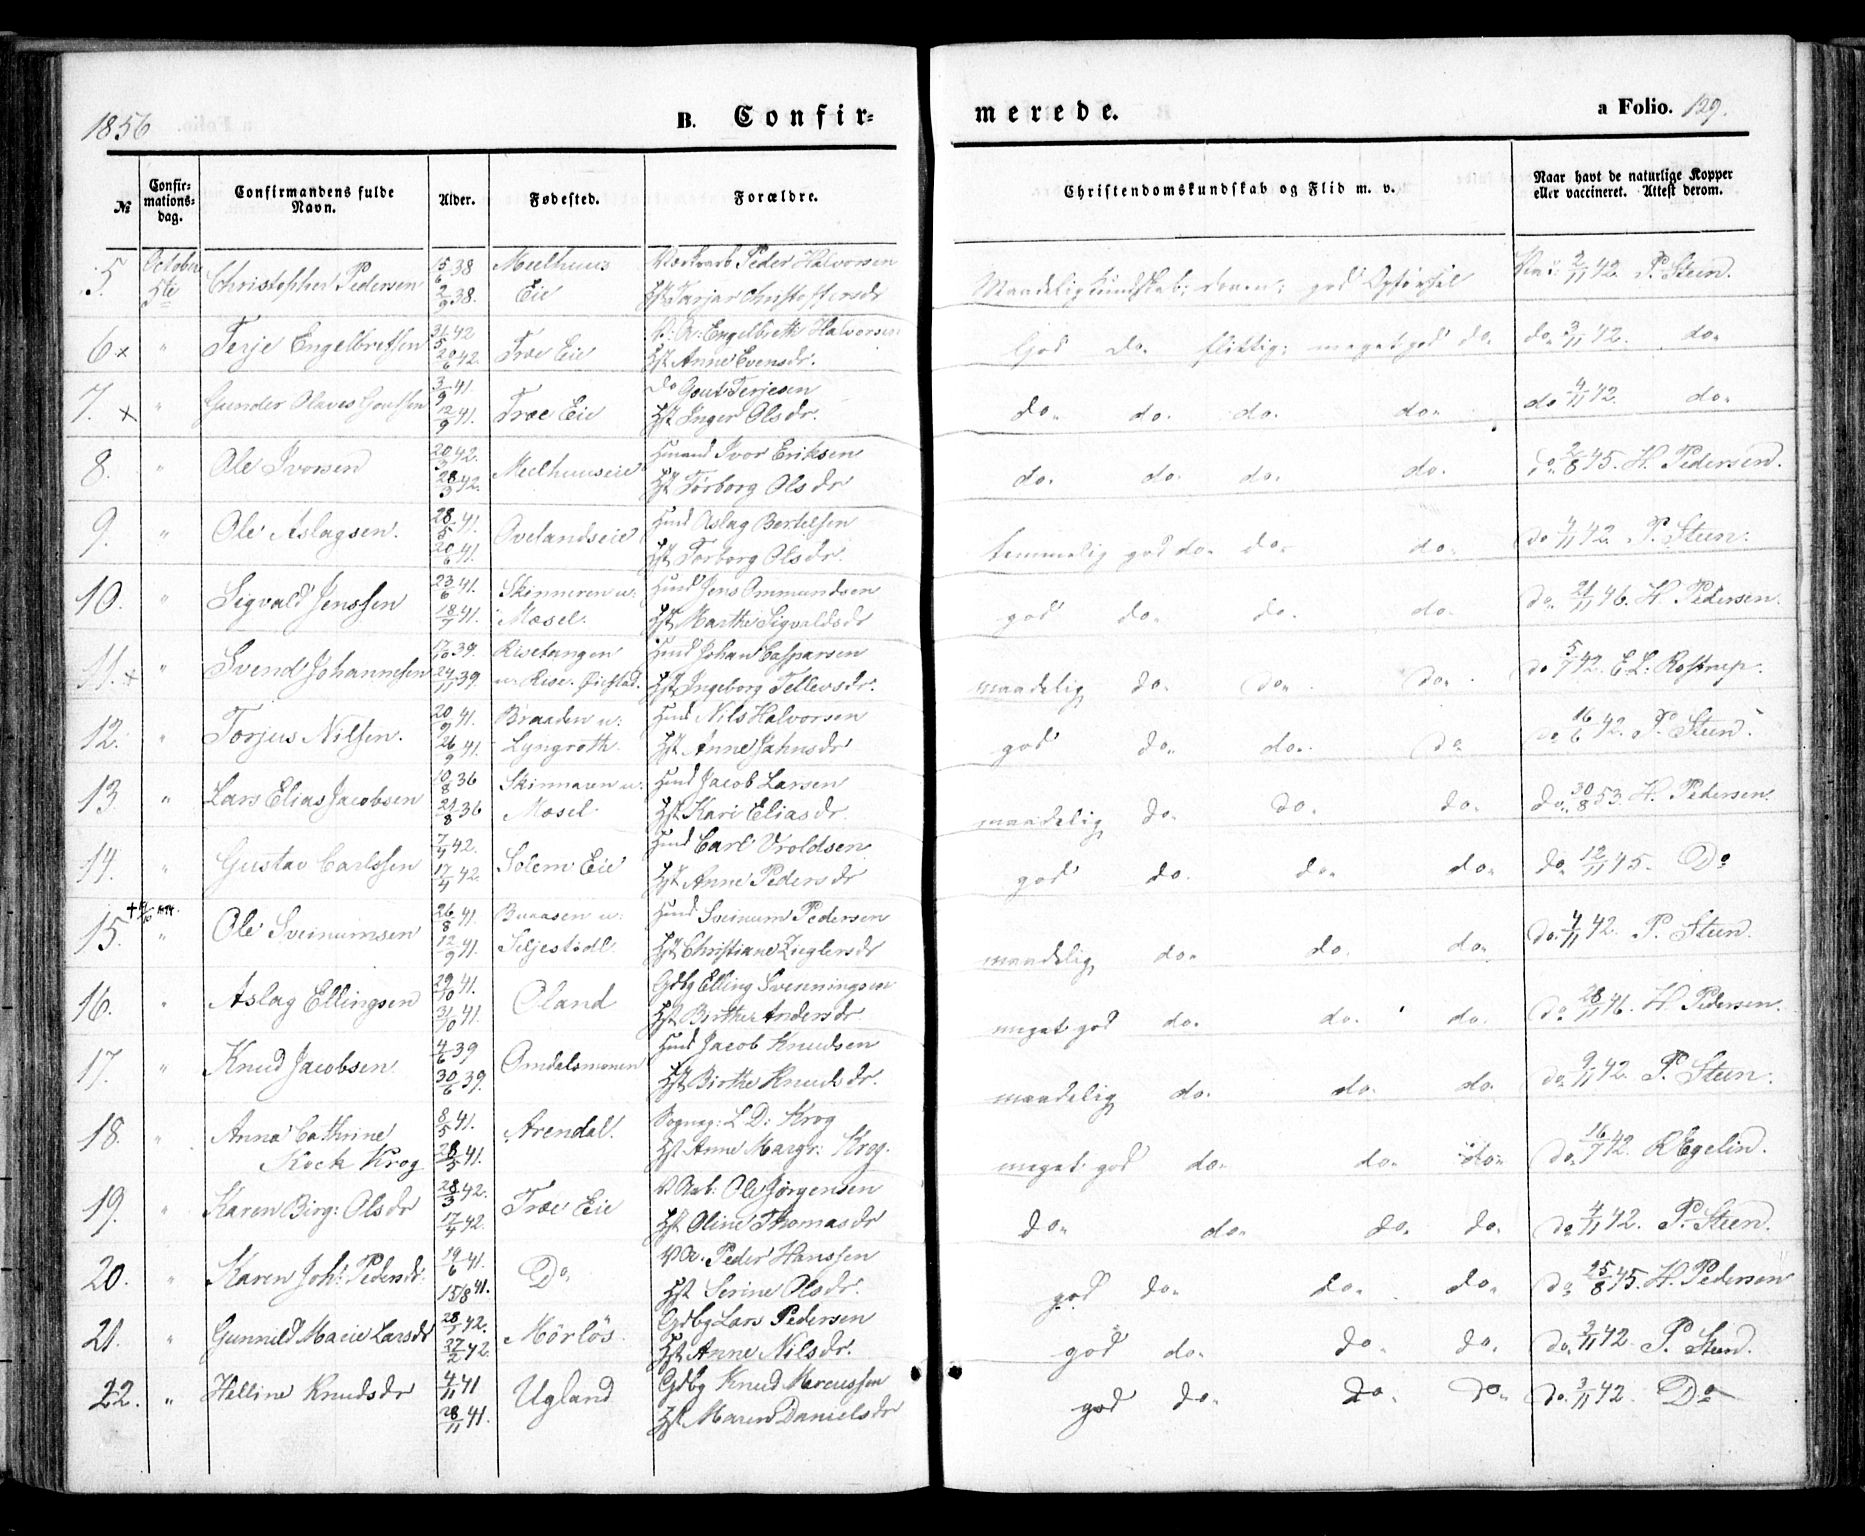 1856
B. Confir-
merede.
a Folio. 129.
№
Confir-
mations-
dag.
Confirmandens fulde
Navn.
Alder.
Fødested.
Forældre.
Christendomskundskab og Flid m. v.
Naar havt de naturlige Kopper
eller vaccineret. Attest derom.
5. October 5te Christopher Pedersen 15/6 38 38. Melhuus Eie Peder Halvorsen
Hst Tarjar Christoffersdr
Maadelig Kundskab; god Opførsel 2/11 42. P. Steen.
6 x " Terje Engelbretsen 31/5 42 20/6 42. Træ Eie Engelbreth Halvorsen
Hst Anne Evensdr.
God do flittig; meget god do do 3/11 42. do
7. x " Gunder Olaves Goutsen 3/9 41. 12/9 41. Træ Eie do Gout Terjesen
Hst Inger Olsdr.
do do. do. do do 4/11 42. do
8. " Ole Ivorsen 20/3 42. 28/3 42. Melhuuseie Huusmd Ivor Eriksen
Hst Torborg Olsdr
do. do. do. do. do 2/8 45. H. Pedersen.
9. " Ole Aslagsen. 28/5 41. 20/6 41. Ovelandseie Huusmd Aslag Bertelsen
Hst Torborg Olsdr.
temmelig god do do do do 4/11 42 P. Steen.
10. " Sigvald Jenssen 23/6 41. 18/7 41. Skinneren u: Mæsel. Huusmd Jens Ommundsen
Hst Marthe Sigvaldsdr
god do. do. do. do. 21/11 46. H. Pedersen.
11. x " Svend Johannesen 17/10 39. 24/11 39. Risetangen u. Rise. Øiestad. Huusmd Johan Casparsen
Hst Ingeborg Tellevsdr.
maadelig do. do. do. do 5/7 42. E L. Rostrup.
12. " Torjus Nilsen. 20/9 41. 26/9 41. Braaden u: Lyngroth. Huusmd Nils Halvorsen
Hst Anne Jahnsdr
god do. do. do do 16/6 42. P. Steen.
13. " Lars Elias Jacobsen 10/8 36 21/8 36 Skinnaren u. Mæsel. Huusmd Jacob Larsen
Hst Kari Eliasdr.
maadelig do. do. do. do. 30/8 53. H. Pedersen.
14. " Gustav Carlssen 7/4 42. 17/4 42. Solem Eie Huusmd Carl Vroldsen
Hst Anne Pedersdr
god do. do. do. do. 12/11 45. Do
15. " Ole Sveinumsen 26/8 41. 12/9 41. Buaasen u: Seljestødl. Huusmd Sveinum Pedersen
Hst Christiane Zieglersdr
maadelig do. do. do. do. 4/11 42. P. Steen.
16. " Aslag Ellingsen 29/10 41. 31/10 41. Øland Gdbg Elling Svenningsen
Hst Birthe Andersdr
meget god do. do. do. do 28/11 46. H. Pedersen.
17. " Knud Jacobsen 4/6 39 30/6 39. Omdalsmonen Huusmd Jacob Knudsen
Hst Birthe Knudsdr.
maadelig do. do. do. do. 9/11 42. P. Steen.
18. " Anna Cathrine Koch Krog 8/5 41. 28/5 41. Arendal. Sognep: L D: Krog
Hst Anne Margr: Krog.
meget god do. do. do. do. 16/7 42. R Egelin.
19. " Karen Birg: Olsdr 28/3 42. 17/4 42. Træ Eie V Arb: Ole Jørgensen
Hst Oline Thomasdr
do. do. do. do. do 4/11 42. P. Steen.
20. " Karen Joh: Pedersdr. 19/6 41. 15/8 41. Do V A. Peder Hanssen
Hst Serine Olsdr.
god do. do. do. do. 25/8 45. H. Pedersen
21. " Gunnild Marie Larsdr 28/1 42. 27/2 42. Mørløs. Gdbg Lars Pedersen
Hst Anne Nilsdr.
god do. do. do. do. 3/11 42. P. Steen.
22. " Helline Knudsdr 4/11 41 28/11 41. Ugland Gdbg Knud Marcussen
Hst Maren Danielsdr
god do. do. do. do. 3/11 42. Do